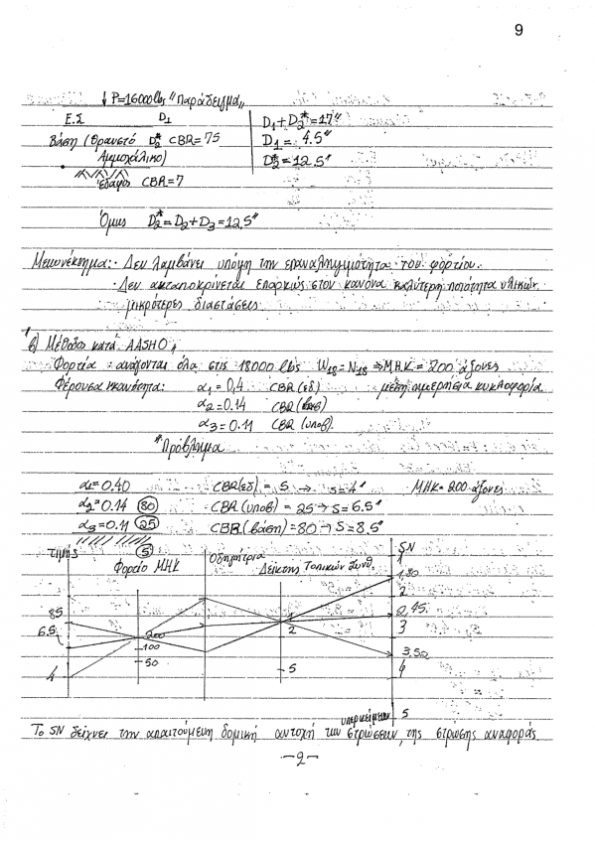 9
P=16000lbs "Παράδειγμα"
Ε.Σ D1 D1+D2*=17"
Βάση (Θραυστό D2* CBR=75 D1= 4.5"
Αμμοχάλικο) D2*=12.5"
Έδαφος CBR=7
Όμως D2*=D2+D3=12.5"
Μειονέκτημα: · Δεν λαμβάνει υπόψη την επαναληψιμότητα του φορτίου.
· Δεν ανταποκρίνεται επαρκώς στον κανόνα καλύτερη ποιότητα υλικών
μικρότερες διαστάσεις
β) Μέθοδος κατά AASHO,
Φορτία: ανάγονται όλα στις 18000 lbs W18=N18 ⇒ ΜΗΚ= 200 άξονες
Φέρουσα ικανότητα: α1=0,4 CBR(εδ) μέση ημερήσια κυκλοφορία
α2=0.14 CBR(βασ)
α3=0.11 CBR(υποβ).
"Πρόβλημα
α1=0,40 CBR(εδ) = 5 → S=4" ΜΗΚ=200 άξονες
α2=0.14 (80) CBR(υποβ) = 25 → S=6.5"
α3=0.11 (25) CBR(βάση)=80 → S=8,5"
(5)
τιμή S Φορτίο ΜΗΚ Οδηγήτρια Δείκτης Τοπικών Συνθ. SN
1
1,80
2
85 1 2,45
6.5 200 2 3
100
50 3,50
4 5 4
5
υπερκείμενων
Το SN δείχνει την απαιτούμενη δομική αντοχή των στρώσεων, της στρώσης αναφοράς.
-2-